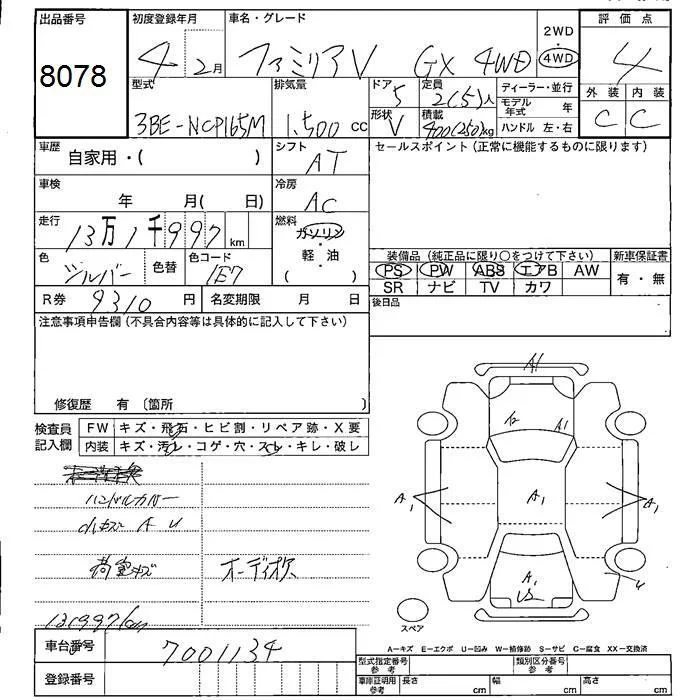 出品番号 初度登録年月 車名・グレード 2WD 評価点
8078 4年 2月 ファミリアV GX 4WD ・ 4WD 4
型式 排気量 ドア 5 定員 2(5)人 ディーラー・並行 外装 内装
3BE-NCP165M 1,500 cc 形状 V 積載 400(250)kg モデル年式 年 C C
ハンドル 左・右
車歴 自家用・( ) シフト AT セールスポイント(正常に機能するものに限ります)
車検 年 月( 日) 冷房 AC
走行 13万1千997km 燃料 ガソリン
・
軽・油
( )
色 シルバー 色替 色コード 1E7
装備品(純正品に限り○をつけて下さい) 新車保証書
PS PW ABS エアB AW 有・無
SR ナビ TV カワ
R券 9310 円 名変期限 月 日 後日品
注意事項申告欄(不具合内容等は具体的に記入して下さい)
修復歴 有 〔箇所 〕
検査員記入欄 FW キズ・飛石・ヒビ割・リペア跡・X要
内装 キズ・汚れ・コゲ・穴・スレ・キレ・破レ
ハンドルカバー
小キズ A U
荷室キズ オーディオ欠
131997km
A1
A1
A1 A1 A1
A1
U2
スペア
A-キズ E-エクボ U-凹み W-補修跡 S-サビ C-腐食 XX-交換済
車台番号 7001134
型式指定番号 参考 類別区分番号 参考
登録番号 車庫証明用 参考 長さ cm 幅 cm 高さ cm